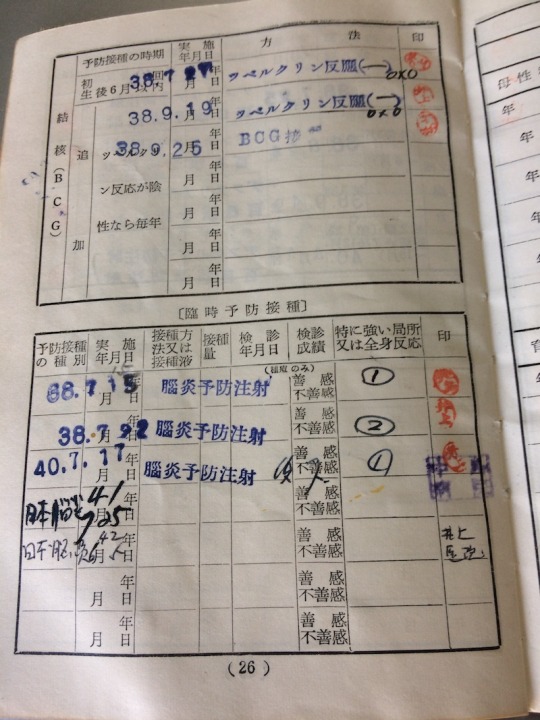 予防接種の時期 実施年月日 方法 印
結核(BCG)
初回 生後6月以内 38.7.27 年月日 ツベルクリン反應(—) 0×0
追加 ツベルクリン反応が陰性なら毎年
38.9.19 年月日 ツベルクリン反應(—) 0×0
38.9.25 年月日 BCG接
年月日
年月日
年月日
[臨時予防接種]
予防接種の種別 実施年月日 接種方法又は接種液 接種量 検診年月日 検診成績 特に強い局所又は全身反応 印
(種痘のみ)
38.7.15 年月日 脳炎予防注射 善感 不善感 ①
38.7.22 年月日 脳炎予防注射 善感 不善感 ②
40.7.17 年月日 脳炎予防注射 善感 不善感 ①
日本脳炎 41 7 25 年月日 善感 不善感
日本脳炎 42 6 5 年月日 善感 不善感 井上
年月日 善感 不善感
年月日 善感 不善感
(26)
母性
年
年
年